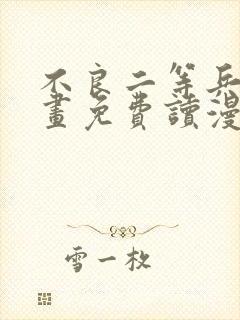 不良二等兵
畫免費讀漫
雪一枚